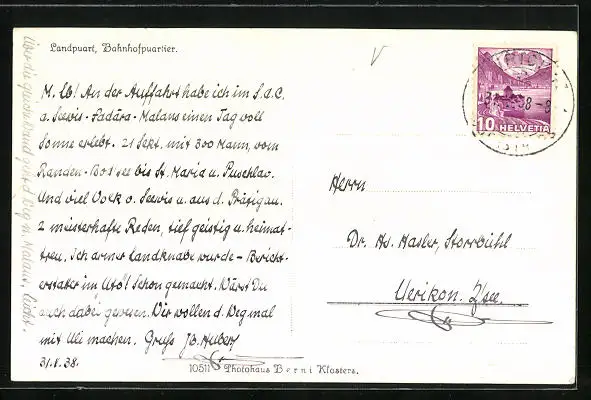 Landquart, Bahnhofquartier.
M. Lb! An der Auffahrt habe ich im S.A.C.
a. Seewis - Fadära - Malans einen Tag voll
Sonne erlebt. 21 Sekt. mit 300 Mann, vom
Randen - Bos'see bis St. Maria u. Puschlav.
Und viel Volk v. Seewis u. aus d. Prätigau.
2 meisterhafte Reden, tief geistig u. heimat-
treu. Ich armer Landknabe wurde - Bericht-
erstatter im Uto! Schon gemacht. Wärst Du
auch dabei gewesen. Wir wollen d. Weg mal
mit Uli machen. Gruss
31.V.38.
Herrn
Dr. Hs. Hasler, Storrbühl
Uerikon. Z/see.
10 HELVETIA
10511 Photohaus Berni Klosters.